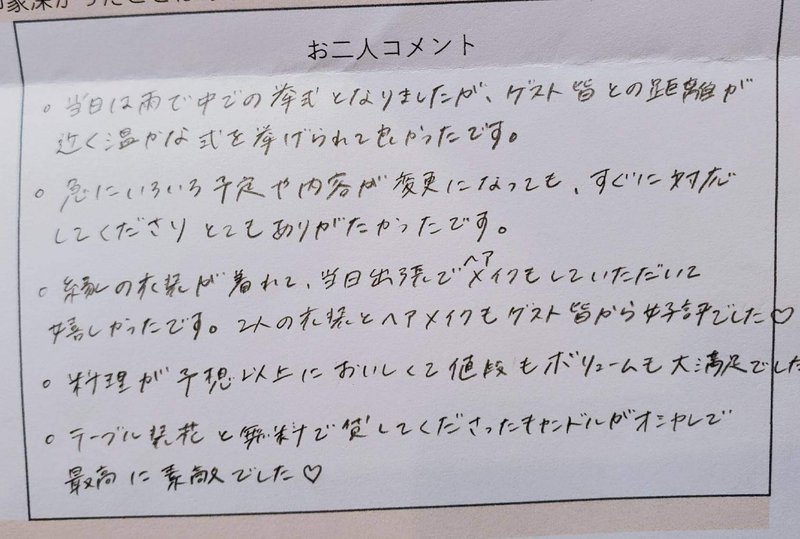 お二人コメント
○ 当日は雨で中での挙式となりましたが、ゲスト皆との距離が
近く温かな式を挙げられて良かったです。
○ 急にいろいろ予定や内容が変更になっても、すぐに対応
してくださりとてもありがたかったです。
○ 縁の衣装が着れて、当日出張でヘアメイクもしていただいて
嬉しかったです。2人の衣装とヘアメイクもゲスト皆から好評でした♡
○ 料理が予想以上においしくて値段もボリュームも大満足でした
○ テーブル装花と無料で貸してくださったキャンドルがオシャレで
最高に素敵でした♡